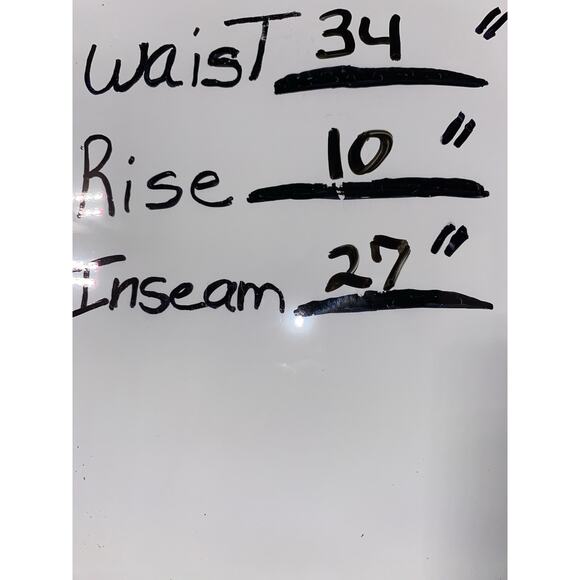 waist 34 "
Rise 10 "
Inseam 27 "